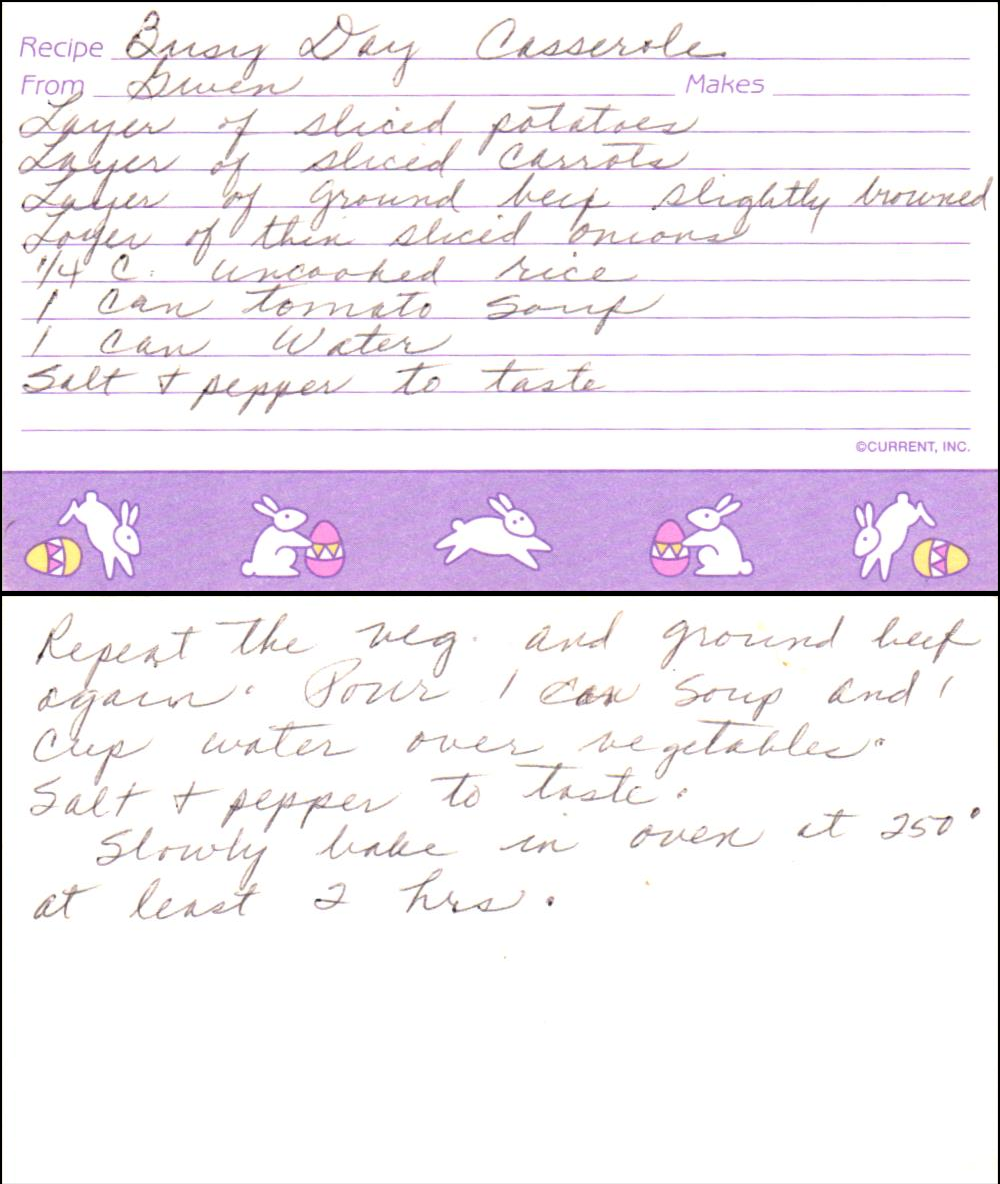 Recipe Busy Day Casserole
From Gwen Makes
Layer of sliced potatoes
Layer of sliced carrots
Layer of ground beef slightly browned
Layer of thin sliced onions
1/4 C. uncooked rice
1 Can tomato Soup
1 Can Water
Salt + pepper to taste
©CURRENT, INC.
Repeat the veg. and ground beef
again. Pour 1 can Soup and 1
Cup water over vegetables.
Salt + pepper to taste.
Slowly bake in oven at 250°
at least 2 hrs.